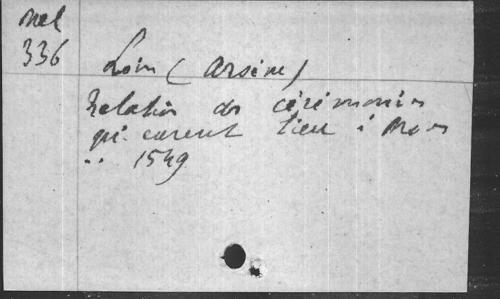 Mel
336
Loin (Arsène)
Relation des cérémonies
qui eurent lieu à Mons
.. 1549